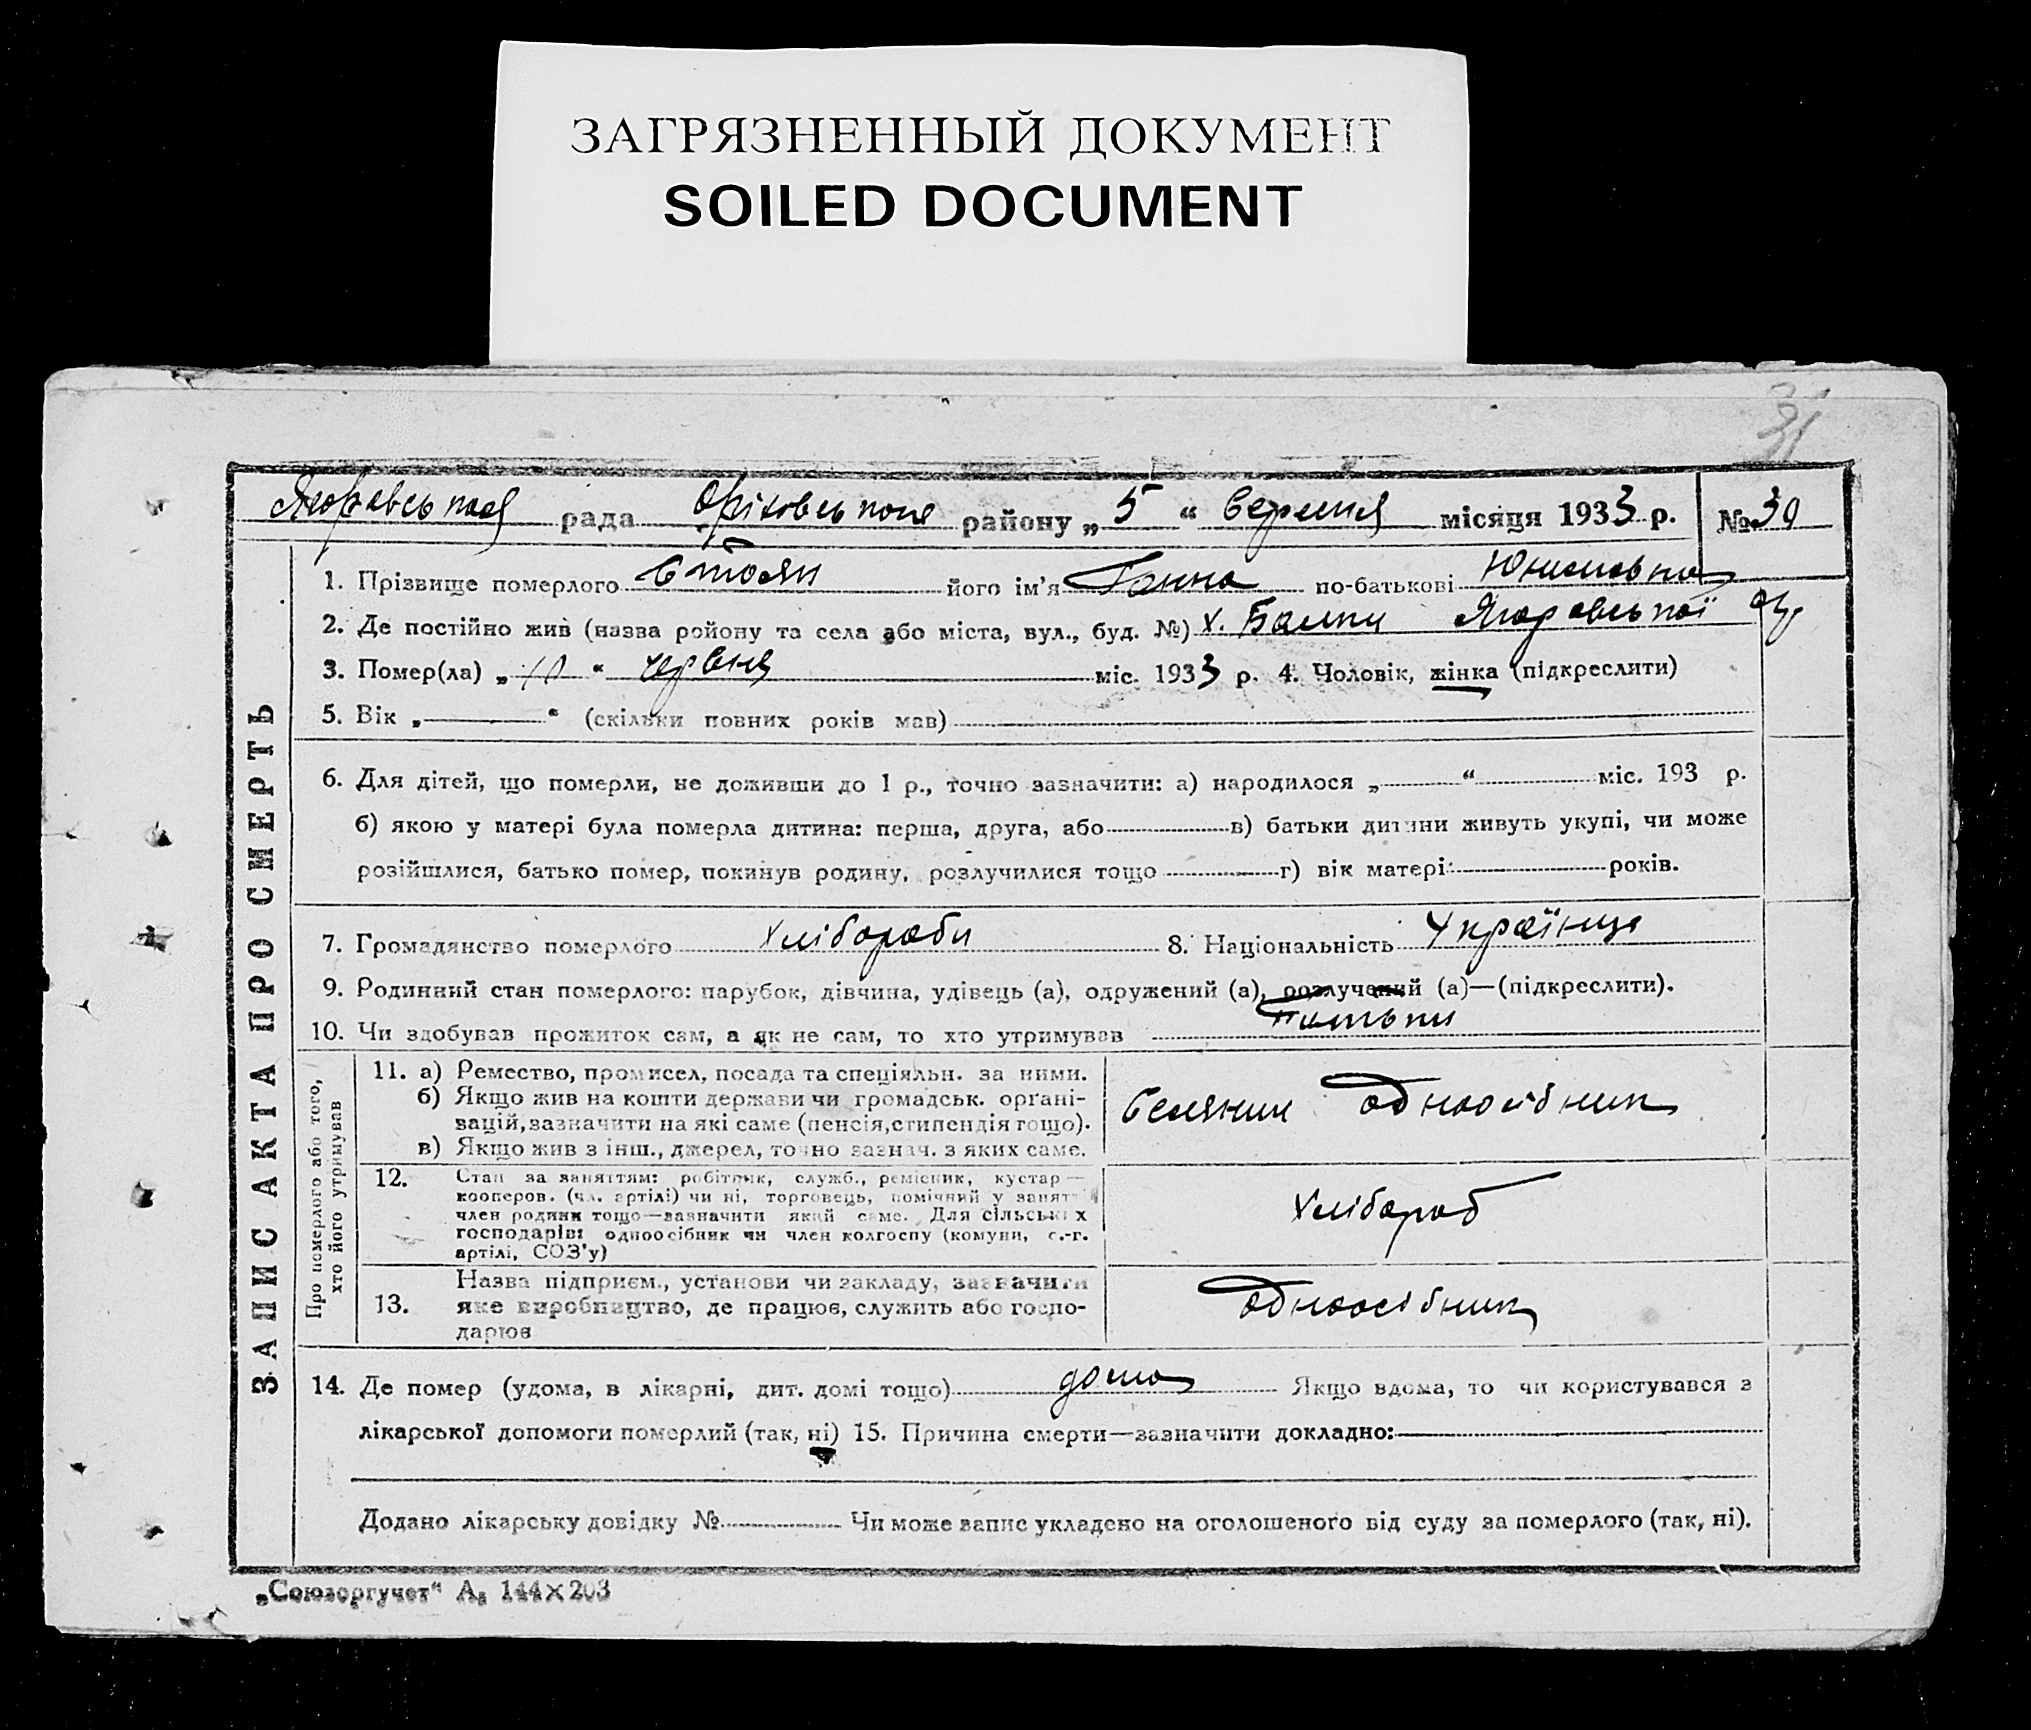 ЗАГРЯЗНЕННЫЙ ДОКУМЕНТ
SOILED DOCUMENT
31
рада району „ 5 “ Серпня місяця 1933 р. № 30
ЗАПИС АКТА ПРО СМЕРТЬ
1. Прізвище померлого Стоян його ім'я Ганна по-батькові
2. Де постійно жив (назва ройону та села або міста, вул., буд. №) х. Балки
3. Помер(ла) „ 10 “ червня міс. 1933 р. 4. Чоловік, жінка (підкреслити)
5. Вік „ — “ (скільки повних років мав)
6. Для дітей, що померли, не доживши до 1 р., точно зазначити: а) народилося „ “ міс. 193 р.
б) якою у матері була померла дитина: перша, друга, або в) батьки дитини живуть укупі, чи може
розійшлися, батько помер, покинув родину, розлучилися тощо г) вік матері: років.
7. Громадянство померлого Хлібороби 8. Національність Українце
9. Родинний стан померлого: парубок, дівчина, удівець (а), одружений (а), розлучений (а)—(підкреслити).
10. Чи здобував прожиток сам, а як не сам, то хто утримував батьки
Про померлого або того, хто його утримував
11. а) Ремество, промисел, посада та спеціяльн. за ними.
б) Якщо жив на кошти держави чи громадськ. орґані-
зацій, зазначити на які саме (пенсія, стипендія тощо).
в) Якщо жив з інш., джерел, точно зазнач. з яких саме.
Селянин одноосібник
12. Стан за заняттям: робітник, служб., ремісник, кустар—
кооперов. (чл. артілі) чи ні, торговець, помічний у занятті
член родини тощо—зазначити який саме. Для сільських
господарів: одноосібник чи член колгоспу (комуни, с.-г.
артілі, СОЗ'у)
Хлібороб
13. Назва підприєм., установи чи закладу, зазначити
яке виробництво, де працює, служить або госпо-
дарює
одноосібник
14. Де помер (удома, в лікарні, дит. домі тощо) дома Якщо вдома, то чи користувався з
лікарської допомоги померлий (так, ні) 15. Причина смерти—зазначити докладно:
Додано лікарську довідку № Чи може запис укладено на оголошеного від суду за померлого (так, ні).
„Союзоргучет“ А₅ 144×203